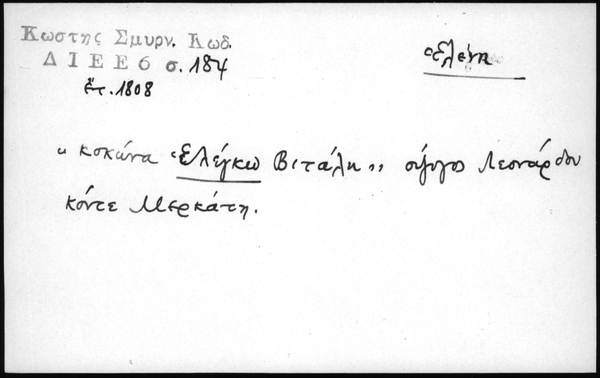 Κωστής Σμυρν. Κωδ.
Ἑλένη
ΔΙΕΕ6 σ. 184
ἔτ. 1808
"κοκώνα Ἑλέγκω Βιτάλη" σύζυγος Λεονάρδου
κόντε Μερκάτη.